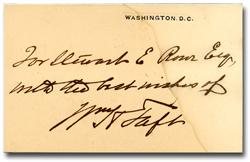 WASHINGTON, D.C.
For Stuart E Rowe Esq,
with the best wishes of
Wm H Taft